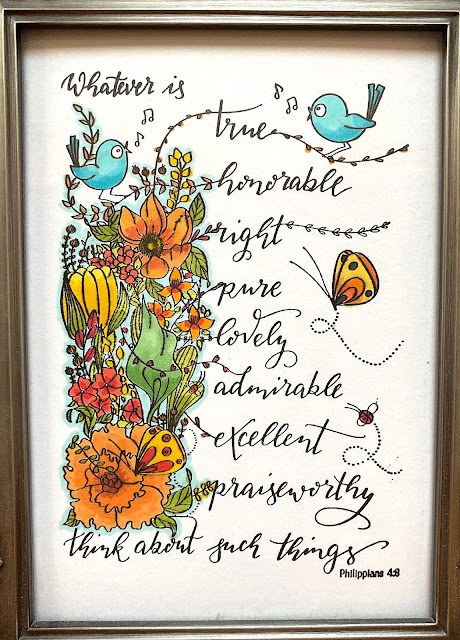 Whatever is
true
honorable
right
pure
lovely
admirable
excellent
praiseworthy
think about such things
Philippians 4:8